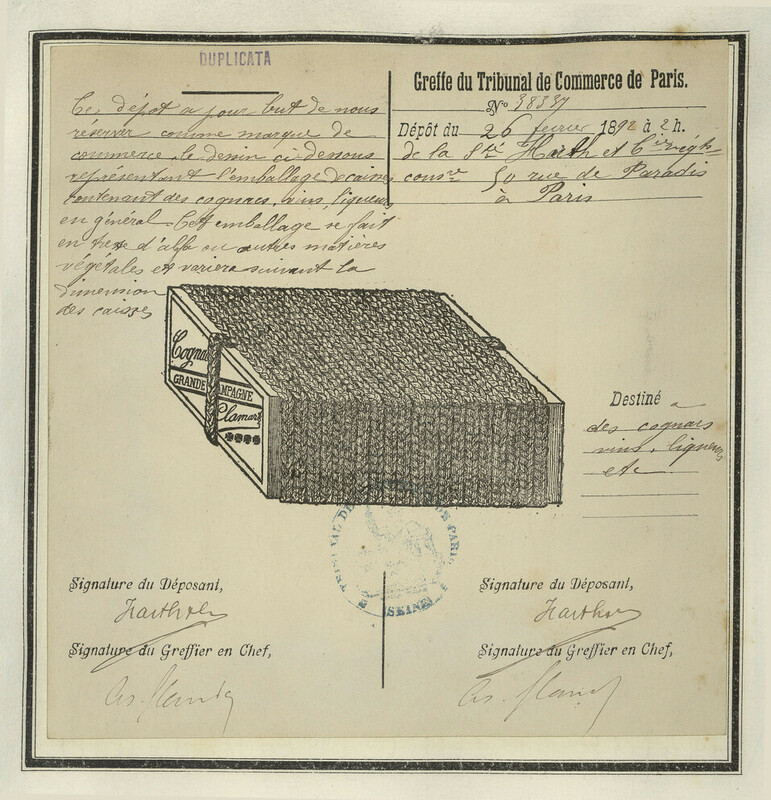 DUPLICATA
Ce dépot a pour but de nous
réserver comme marque de
commerce, le dessin ci-dessous
représentant l'emballage de caisses
contenant des cognacs, vins, liqueurs
en général. Cet emballage se fait
en tresse d'alfa ou autres matières
végétales et variera suivant la
dimension
des caisses
Greffe du Tribunal de Commerce de Paris.
No 38337
Dépôt du 26 fevrier 1892 à 2 h.
de la Sté Harth et Cie
50 rue de Paradis
à Paris
Cognac
GRANDE MPAGNE
Clamart
Destiné a
des cognacs
vins, liqueurs
etc
TRIBUNAL DE DE PARIS
SEINE
Signature du Déposant,
Signature du Déposant,
Signature du Greffier en Chef,
Signature du Greffier en Chef,